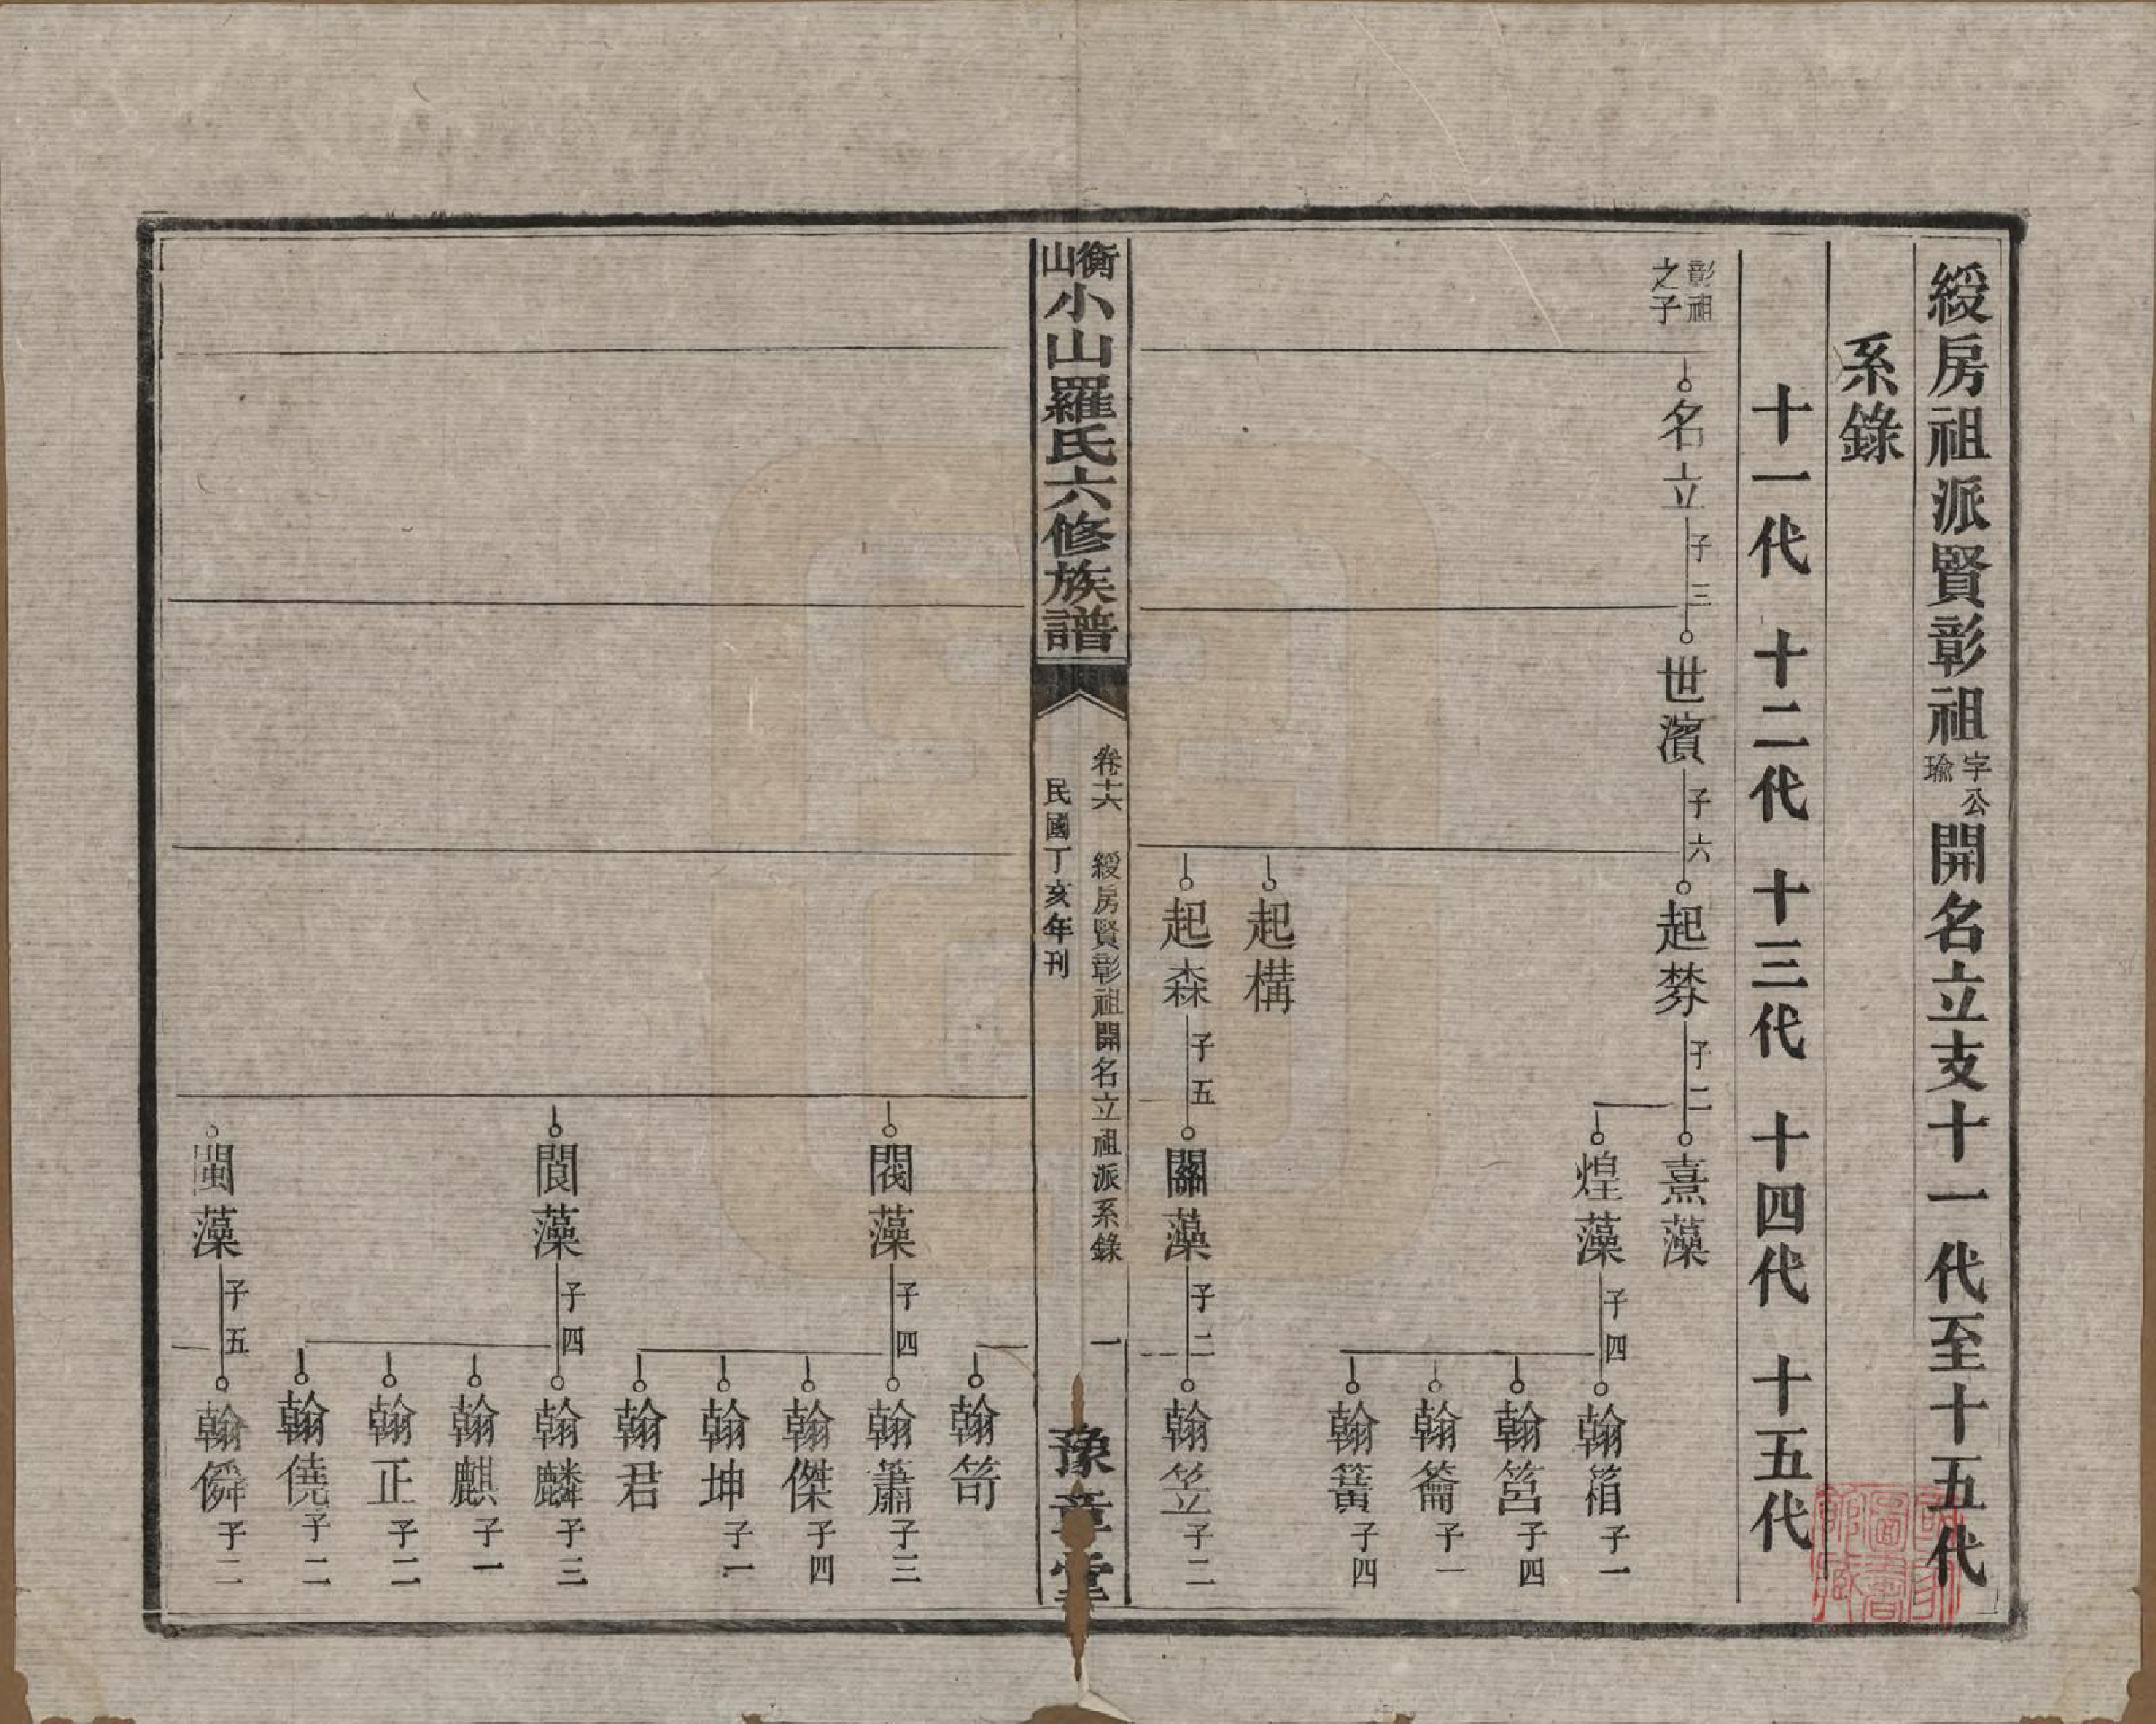 綬房祖派賢彰祖字瑜公開名立支十一代至十五代
系錄
十一代　十二代　十三代　十四代　十五代
彰祖之子
名立 子三
世濱 子六
起棼 子二
熹藻
煌藻 子四
翰箱 子一
翰筥 子四
翰籥 子一
翰簧 子四
起構
起森 子五
關藻 子二
翰笠 子二
衡山小山羅氏六修族譜
卷十六　綬房賢彰祖開名立祖派系錄　一
民國丁亥年刊
豫章堂
翰笱
閥藻 子四
翰簫 子三
翰傑 子四
翰坤 子一
翰君
閬藻 子四
翰麟 子三
翰麒 子一
翰正 子二
翰僥 子二
閩藻 子五
翰僢 子二